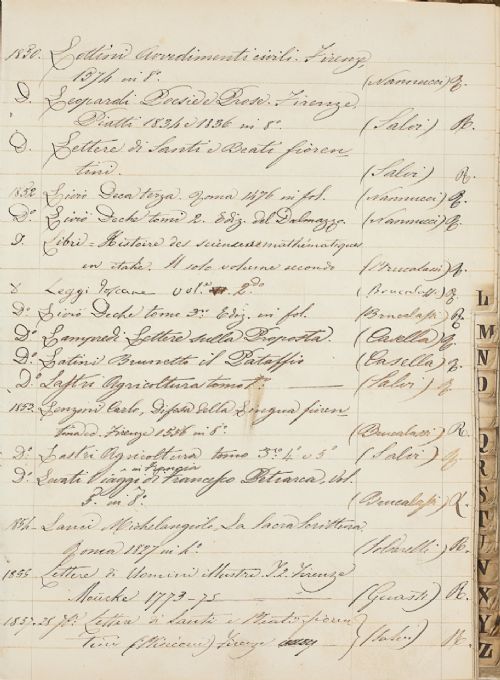 1850. Lottini Avvedimenti civili. Firenze,
1574 in 8°. (Nannucci) R.
D. Leopardi Poesie e Prose. Firenze.
Piatti 1834 e 1836 in 8°. (Salvi) R.
D. Lettere di Santi e Beati fioren-
tini. (Salvi) R.
1852. Livio Deca terza. Roma 1476 in fol. (Nannucci) R.
D° Livio Deche tomi 2. Ediz. del Dalmazzo. (Nannucci) R.
Libri = Histoire des sciences mathématiques
en Italie. Il solo volume secondo (Brucalassi) R.
Leggi Toscane vol. 2do (Brucalassi) R
D° Livio Deche tomo 3°. Ediz. in fol. (Brucalassi) R
D° Lampredi Lettere sulla Proposta. (Casella) R.
D° Latini Brunetto il Pataffio (Casella) R.
D° Lastri Agricoltura tomo (Salvi) R
1853. Lenzoni Carlo, Difesa della Lingua fioren-
tina. Firenze 1556 in 8°. (Brucalassi) R.
D° Lastri Agricoltura tomo 3°. 4° e 5° (Salvi) R
D° Levati Viaggi di Francesco Petrarca. Vol.
in Francia
5. in 8°. (Brucalassi) R.
1854. Lanci Michelangiolo, La Sacra Scrittura
Roma 1827 in 4°. R.
1855. Lettere di Uomini illustri. T. 2. Firenze
Moücke 1773-75 (Guasti) R.
1857. Lettere di Santi e Beati fioren-
tini Firenze (Salvi) R.
L
M
N
O
Q
R
S
T
U
V
X
Y
Z